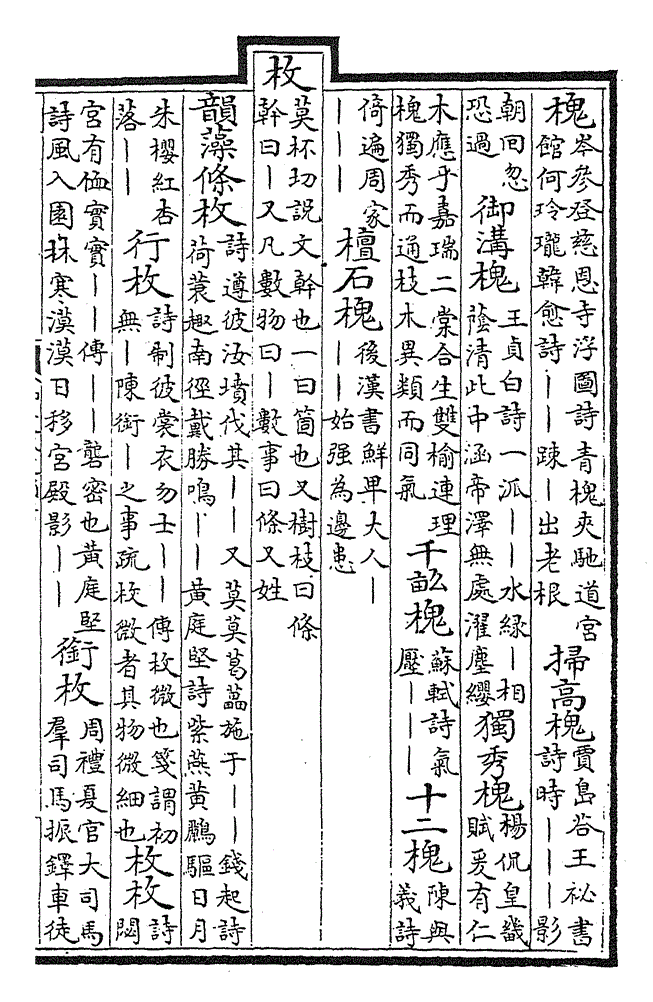 槐岑參登慈恩寺浮圖詩青槐夾馳道宮館何玲瓏韓愈詩——踈—出老根掃高槐賈島答王祕書詩時———影
朝回忽恐過御溝槐王貞白詩一派——水緑—相蔭清此中涵帝澤無處濯塵纓獨秀槐楊侃皇畿賦爰有仁
木應乎嘉瑞二棠合生雙榆連理槐獨秀而通枝木異類而同氣千畝槐蘇軾詩氣壓———十二槐陳與義詩
倚遍周家———檀石槐後漢書鮮卑大人———始强為邊患
枚莫杯切説文幹也一曰箇也又樹枝曰條幹曰—又凡數物曰—數事曰條又姓
韻藻條枚詩遵彼汝墳伐其——又莫莫葛藟施于——錢起詩荷蓑趣南徑戴勝鳴——黄庭堅詩紫燕黄鸝驅日月
朱櫻紅杏落——行枚詩制彼裳衣勿士——傳枚微也箋謂初無—陳銜—之事疏枚微者其物微細也枚枚詩閟
宮有侐實實——傳——礱密也黄庭堅詩風入園林寒漠漠日移宮殿影——銜枚周禮夏官大司馬羣司馬振鐸車徒